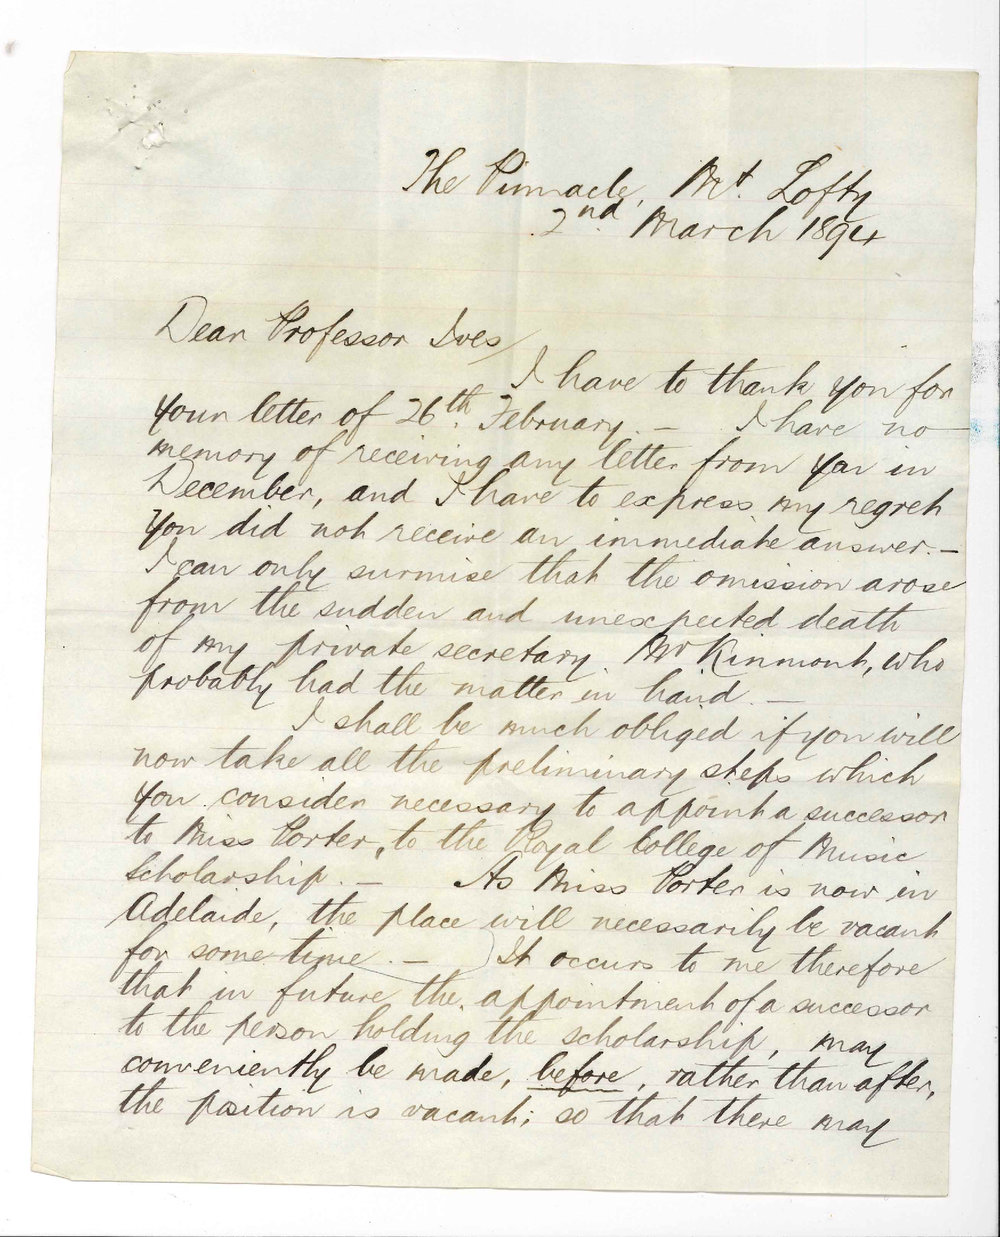 The Pinnacle, Mt. Lofty
2nd. March 1894
Dear Professor Ives,
I have to thank you for
your letter of 26th. February. — I have no
memory of receiving any letter from you in
December, and I have to express my regret
you did not receive an immediate answer. —
I can only surmise that the omission arose
from the sudden and unexpected death
of my private secretary Mr Kinmont, who
probably had the matter in hand. —
I shall be much obliged if you will
now take all the preliminary steps which
you consider necessary to appoint a successor
to Miss Porter, to the Royal College of Music
Scholarship. — As Miss Porter is now in
Adelaide, the place will necessarily be vacant
for some time. — It occurs to me therefore
that in future the appointment of a successor
to the person holding the scholarship, may
conveniently be made, before, rather than after,
the position is vacant; so that there may